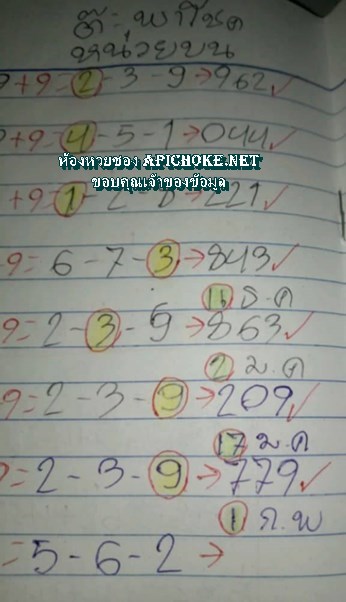 ต๊ะ พาโชค
หน่วยบน
9+9=2-3-9→962✓
9+9=4-5-1→044✓
ห้องหวยซอง APICHOKE.NET
ขอบคุณเจ้าของข้อมูล
+9=1-2-8→221✓
9=6-7-3→843✓
16 ธ.ค
9=2-3-9→863✓
2 ม.ค
9=2-3-9→209✓
17 ม.ค
=2-3-9→779✓
1 ก.พ
=5-6-2→